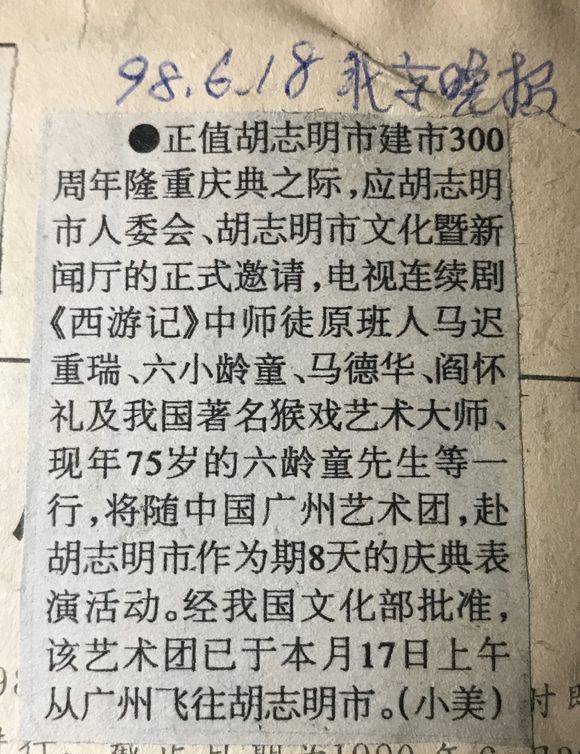 98.6.18 北京晚报
●正值胡志明市建市300
周年隆重庆典之际,应胡志明
市人委会、胡志明市文化暨新
闻厅的正式邀请,电视连续剧
《西游记》中师徒原班人马迟
重瑞、六小龄童、马德华、阎怀
礼及我国著名猴戏艺术大师、
现年75岁的六龄童先生等一
行,将随中国广州艺术团,赴
胡志明市作为期8天的庆典表
演活动。经我国文化部批准,
该艺术团已于本月17日上午
从广州飞往胡志明市。(小美)
时即